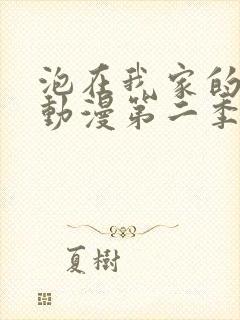 泡在我家的
動漫第二季
夏樹